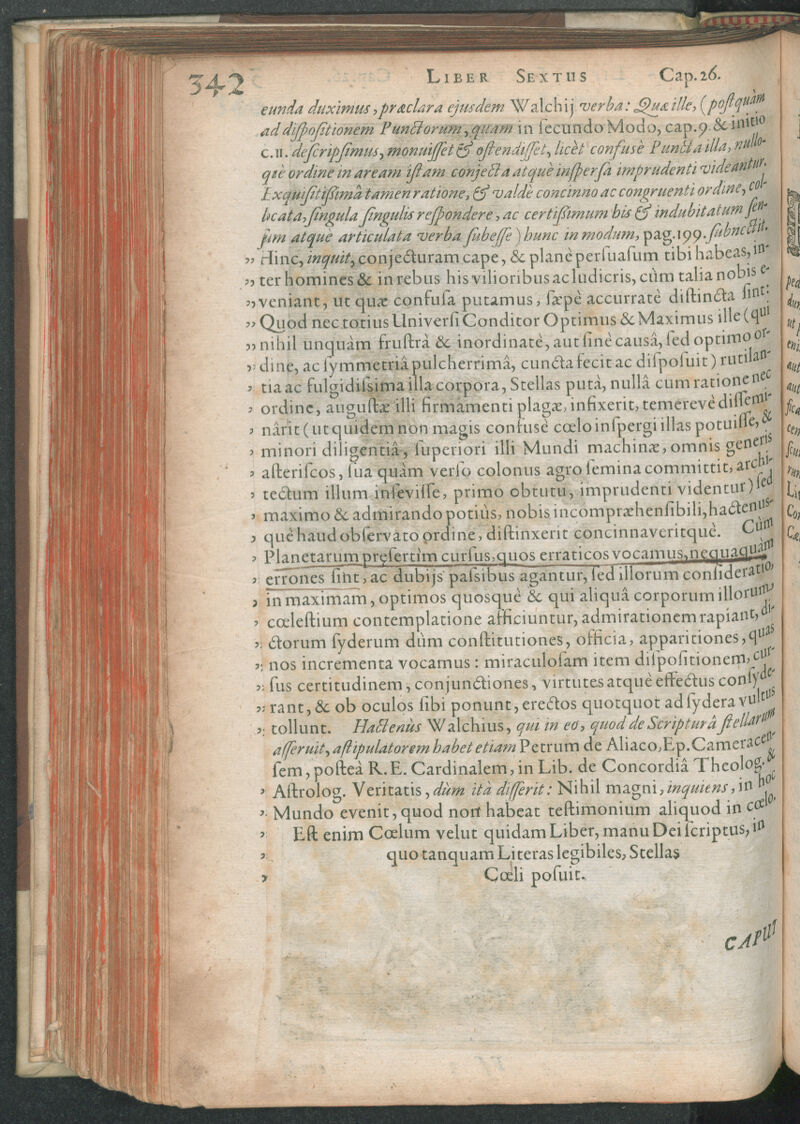 342 LIBER SEXTUS Cap. 26.
eunda duximus, præclara ejusdem Walchij verba: Quæ ille, (postquàm
ad dispositionem Punctorum, quam in secundo Modo, cap. 9. & initio
c. 11. descripsimus, monuisset & ostendisset, licèt confusè Puncta illa, nullo-
qué ordine in aream istam conjecta atquè inspersa imprudenti videantur,
Exquisitissimâ tamen ratione, & valdè concinno ac congruenti ordine, col-
locata, singula singulis respondere, ac certissimum his & indubitatum sen-
sum atque articulata verba subesse) hunc in modum, pag. 199. subnectit.
„ Hinc, inquit, conjecturam cape, & planè persuasum tibi habeas, in-
„ ter homines & in rebus his vilioribus ac ludicris, cùm talia nobis e-
„ veniant, ut quæ confusa putamus, sæpè accurratè distincta sint:
„ Quod nec totius Universi Conditor Optimus & Maximus ille (qui
„ nihil unquàm frustrà & inordinatè, aut sinè causâ, sed optimo or-
„ dine, ac symmetriâ pulcherrimâ, cuncta fecit ac disposuit) rutilan-
„ tia ac fulgidissima illa corpora, Stellas putà, nullâ cum ratione nec
„ ordine, augustæ illi firmamenti plagæ, infixerit, temerevè dissemi-
„ nârit (ut quidem non magis confusè cœlo inspergi illas potuisse, &
„ minori diligentiâ, superiori illi Mundi machinæ, omnis generis
„ asteriscos, sua quàm verso colonus agro semina committit, archi-
„ tectum illum insevisse, primo obtutu, imprudenti videntur) sed
„ maximo & admirando potiùs, nobis incompræhensibili, hactenus-
„ què haud observato ordine, distinxerit concinnaveritquè. Cùm
„ Planetarum pręsertìm cursus, quos erraticos vocamus, nequaquàm
„ errones sint, ac dubijs passibus agantur, sed illorum consideratio,
„ in maximam, optimos quosquè & qui aliquâ corporum illorum
„ cœlestium contemplatione afficiuntur, admirationem rapiant, di-
„ ctorum syderum dùm constitutiones, officia, apparitiones, quas
„ nos incrementa vocamus: miraculosam item dispositionem, cur-
„ sus certitudinem, conjunctiones, virtutes atquè effectus consyde-
„ rant, & ob oculos sibi ponunt, erectos quotquot ad sydera vultus
„ tollunt. Hactenùs Walchius, qui in eo, quod de Scripturâ stellarum
asseruit, astipulatorem habet etiam Petrum de Aliaco, Ep. Cameracen-
sem, posteà R. E. Cardinalem, in Lib. de Concordiâ Theolog. &
„ Astrolog. Veritatis, dùm ità disserit: Nihil magni, inquiens, in hoc
„ Mundo evenit, quod non habeat testimonium aliquod in cœlo.
„ Est enim Cœlum velut quidam Liber, manu Dei scriptus, in
„ quo tanquam Literas legibiles, Stellas
„ Cœli posuit.
CAPUT